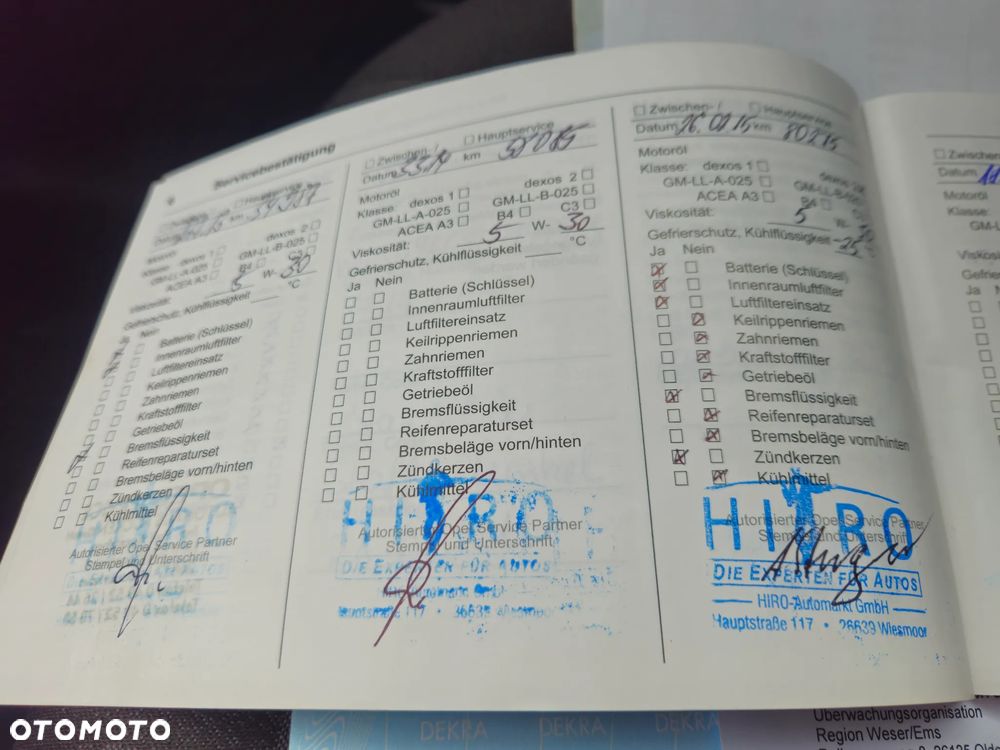 Servicebestätigung
km
Motoröl
Klasse: dexos 1 ☐ dexos 2 ☐
GM-LL-A-025 ☐ GM-LL-B-025 ☐
ACEA A3 ☐ B4 ☐ C3 ☐
Viskosität: 5 W- 30
Gefrierschutz, Kühlflüssigkeit ____ °C
Nein
Batterie (Schlüssel)
Innenraumluftfilter
Luftfiltereinsatz
Keilrippenriemen
Zahnriemen
Kraftstofffilter
Getriebeöl
Bremsflüssigkeit
Reifenreparaturset
Bremsbeläge vorn/hinten
Zündkerzen
Kühlmittel
HIRO
Autorisierter Opel Service Partner
Stempel und Unterschrift
☐ Zwischen-/ ☐ Hauptservice
Datum km
Motoröl
Klasse: dexos 1 ☐ dexos 2 ☐
GM-LL-A-025 ☐ GM-LL-B-025 ☐
ACEA A3 ☐ B4 ☐ C3 ☐
Viskosität: 5 W- 30
Gefrierschutz, Kühlflüssigkeit ____ °C
Ja Nein
☐ ☐ Batterie (Schlüssel)
☐ ☐ Innenraumluftfilter
☐ ☐ Luftfiltereinsatz
☐ ☐ Keilrippenriemen
☐ ☐ Zahnriemen
☐ ☐ Kraftstofffilter
☐ ☐ Getriebeöl
☐ ☐ Bremsflüssigkeit
☐ ☐ Reifenreparaturset
☐ ☐ Bremsbeläge vorn/hinten
☐ ☐ Zündkerzen
☐ ☐ Kühlmittel
HIRO
Autorisierter Opel Service Partner
Stempel und Unterschrift
DIE EXPERTEN FÜR AUTOS
Hauptstraße 117 • 26639
☐ Zwischen-/ ☐ Hauptservice
Datum 26.02.15 km 80215
Motoröl
Klasse: dexos 1 ☐
GM-LL-A-025 ☐ GM-LL-B-025
ACEA A3 ☐ B4 ☐
Viskosität: 5 W-
Gefrierschutz, Kühlflüssigkeit -25
Ja Nein
☒ ☐ Batterie (Schlüssel)
☒ ☐ Innenraumluftfilter
☒ ☐ Luftfiltereinsatz
☐ ☒ Keilrippenriemen
☐ ☒ Zahnriemen
☐ ☒ Kraftstofffilter
☐ ☒ Getriebeöl
☒ ☐ Bremsflüssigkeit
☐ ☒ Reifenreparaturset
☐ ☒ Bremsbeläge vorn/hinten
☒ ☐ Zündkerzen
☐ ☒ Kühlmittel
HIRO
Autorisierter Opel Service Partner
Stempel und Unterschrift
DIE EXPERTEN FÜR AUTOS
HIRO-Automarkt GmbH
Hauptstraße 117 • 26639 Wiesmoor
☐ Zwischen
Datum
Motoröl
Klasse:
GM-L
Viskosität:
Ja
DEKRA DEKRA DEKRA
Überwachungsorganisation
Region Weser/Ems
OTOMOTO